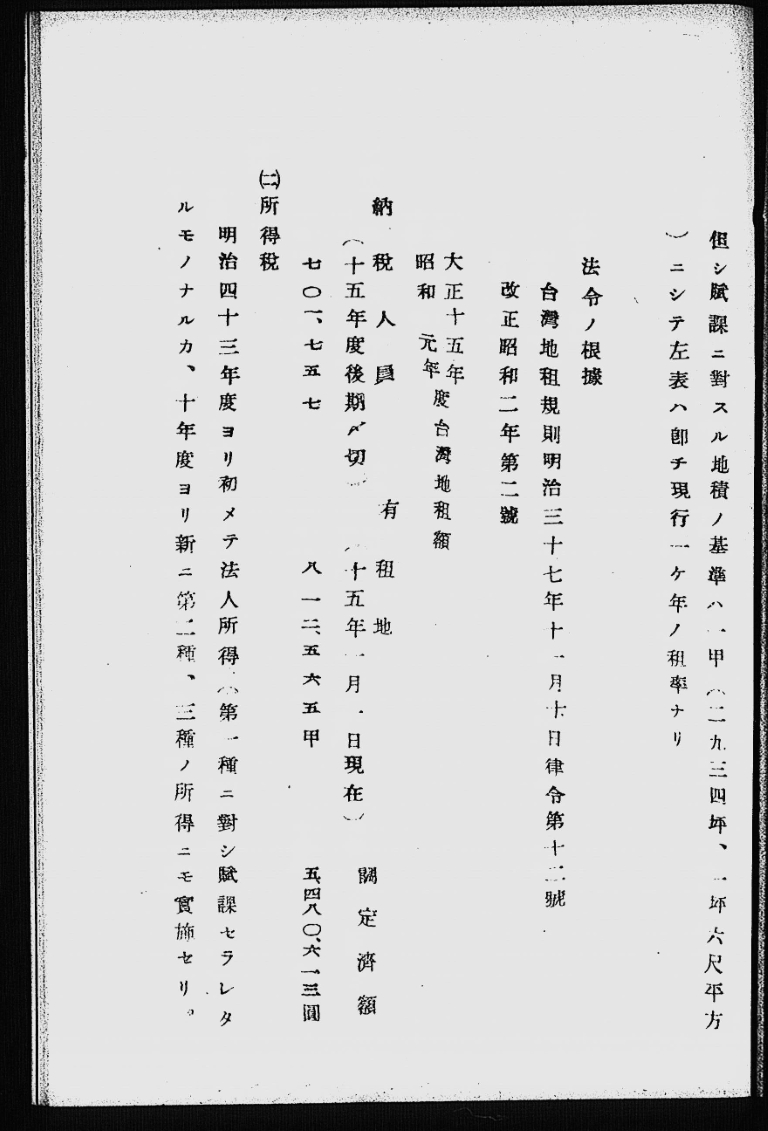 但シ賦課ニ對スル地積ノ基準ハ一甲(二九三四坪、一坪六尺平方
)ニシテ左表ハ卽チ現行一ケ年ノ租率ナリ
法令ノ根據
台灣地租規則明治三十七年十一月十日律令第十二號
改正昭和二年第二號
大正十五年
昭和元年
度台灣地租額
納稅人員
有租地
調定濟額
(十五年度後期〆切)
(十五年一月一日現在)
七〇一、七五七
八一二、五六五甲
五、四八〇、六一三圓
㈡所得稅
明治四十三年度ヨリ初メテ法人所得(第一種ニ對シ賦課セラレタ
ルモノナルカ、十年度ヨリ新ニ第二種、三種ノ所得ニモ實施セリ。